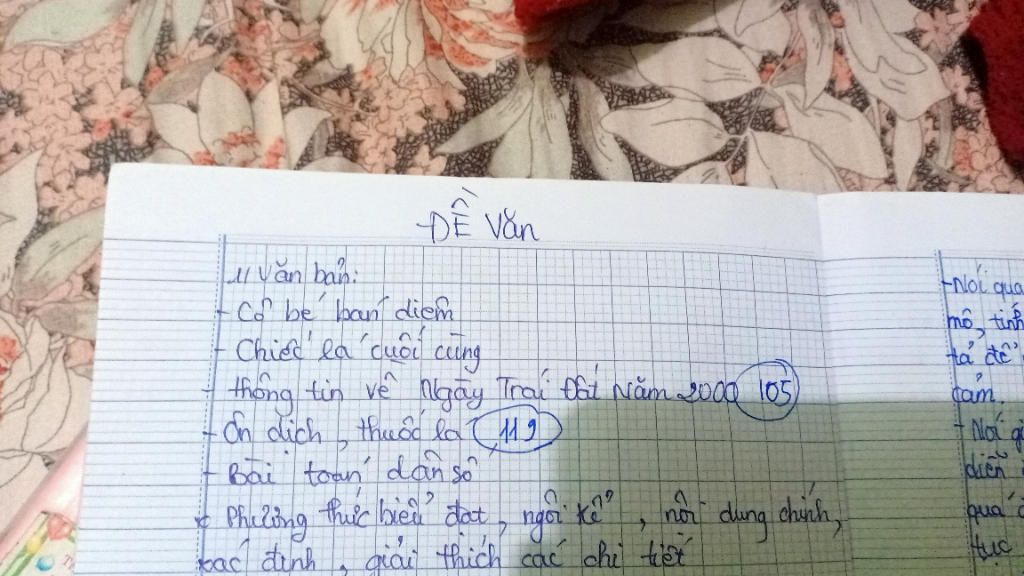 ĐỀ Văn
1/ Văn bản:
- Cô bé bán diêm
- Chiếc lá cuối cùng
- thông tin về Ngày Trái Đất Năm 2000 105
- Ôn dịch, thuốc lá 119
- Bài toán dân số
* Phương thức biểu đạt, ngôi kể, nội dung chính,
xác định, giải thích các chi tiết
- Nói quá
mô, tính
tả để
cảm.
- Nói gi
diễn
quá
tục